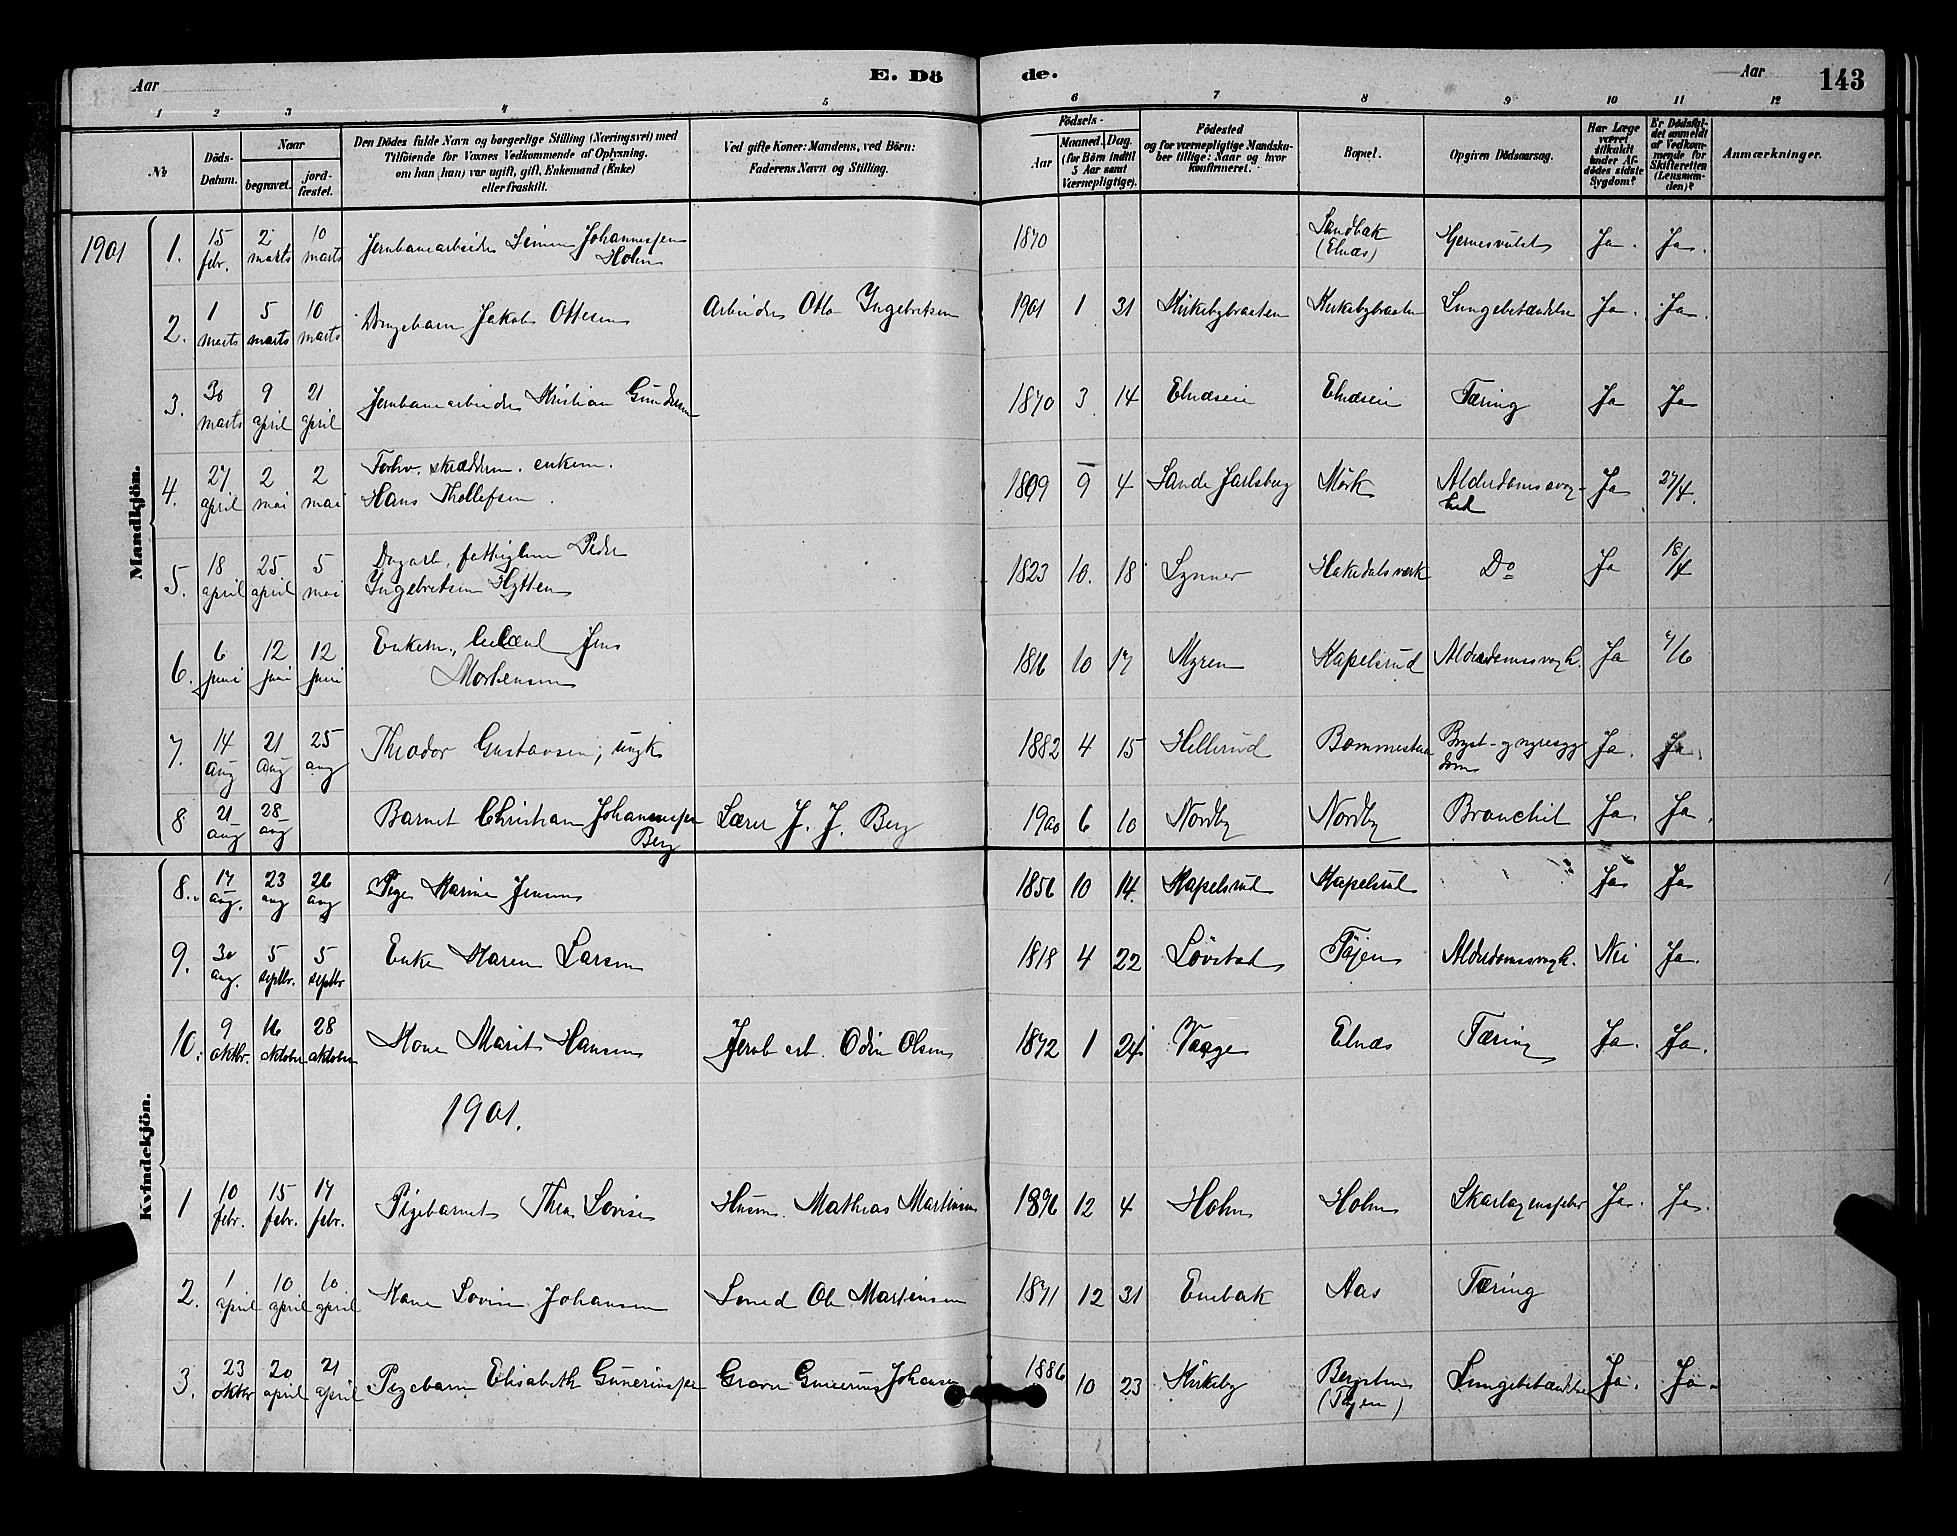 Aar
E. Dö
de.
Aar
143
1 2 3 4 5 6 7 8 9 10 11 12
№
Döds-
Datum.
Naar
begravet.
jord-
fæstet.
Den Dödes fulde Navn og borgerlige Stilling (Næringsvei) med
Tilföiende for Voxnes Vedkommende af Oplysning,
om han (hun) var ugift, gift, Enkemand (Enke)
eller fraskilt.
Ved gifte Koner: Mandens, ved Börn:
Faderens Navn og Stilling.
Födsels-
Aar
Maaned. Dag.
(for Börn indtil
5 Aar samt
Værnepligtige).
Födested
og for værnepligtige Mandska-
ber tillige: Naar og hvor
konfirmeret.
Bopæl.
Opgiven Dödsaarsag.
Har Læge
været
tilkaldt
under Af-
dödes sidste
Sygdom?
Er Dödsfal-
det anmeldt
af Vedkom-
mende for
Skifteretten
(Lensman-
den)?
Anmærkninger.
Mandkjön.
1901 1. 15 febr. 2 marts 10 marts Jernbanearbeider Simen Johannessen
Holm 1870 Sandbak
(Elnæs) Ja. Ja.
2. 1 marts 5 marts 10 marts Drengebarn Jakob Ottesen Arbeider Otto Ingebretsen 1901 1 31 Kirkebybraaten Kirkebybraaten Lungebetændelse Ja. Ja.
3. 30 marts 9 april 21 april Jernbanearbeider Kristian Gundersen 1870 3 14 Elnæseie Elnæseie Tæring Ja Ja
4. 27 april 2 mai 2 mai Forhv. skrædderm. enkem.
Hans Thollefsen. 1809 9 4 Sande Jarlsberg Mörk Alderdomssvag-
hed Ja 27/4.
5. 18 april 25 april 5 mai Dagarb, fattiglem Peder
Ingebretsen Hytten 1823 10. 18 Hakedalsverk Do Ja 18/4
6. 6 juni 12 juni 12 juni Enkem., Jens
Mortensen 1816 10 17 Myren Kapelsrud Alderdomssvagh. Ja 6/6
7. 14 Aug 21 Aug 25 aug Theodor Gustavsen, ungk 1882 4 15 Hellerud Bommesteen Bryst- og nyresyg
dom Ja. Ja.
8 21 aug 28 aug Barnet Christian Johannessen
Berg Lærer J. J. Berg 1900 6 10 Nordby Nordby Bronchit Ja. Ja.
Kvindekjön.
8. 17 aug. 23 aug 26 aug Pige Marine Jensen 1856 10 14. Kapelsrud Kapelsrud Ja Ja
9. 30 aug. 5 septbr. 5 septbr Enke Maren Larsen 1818 4 22 Lövstad Töjen Alderdomssvagh. Nei Ja.
10. 9 oktbr. 16 oktober 28 oktober Kone Marit Hansen Jernb arb. Odin Olsen 1872 1 24 Vaage Elnæs Tæring Ja. Ja.
1901.
1 10 febr. 15 febr. 17 febr. Pigebarnet Thea Lovise Husm. Mathias Martinsen 1896 12 4 Holm Holm Skarlagensfeber Ja. Ja.
2. 1 april 10 april 10 april Kone Lovise Johansen Smed Ole Martinsen 1871 12 31 Enebak Aas Tæring
3. 23 oktbr 20 april 21 april Pigebarn Elisabeth Guneriussen Graver Gunerius Johansen 1886 10 23 Kirkeby
(Töjen) Lungebetændelse Ja. Ja.